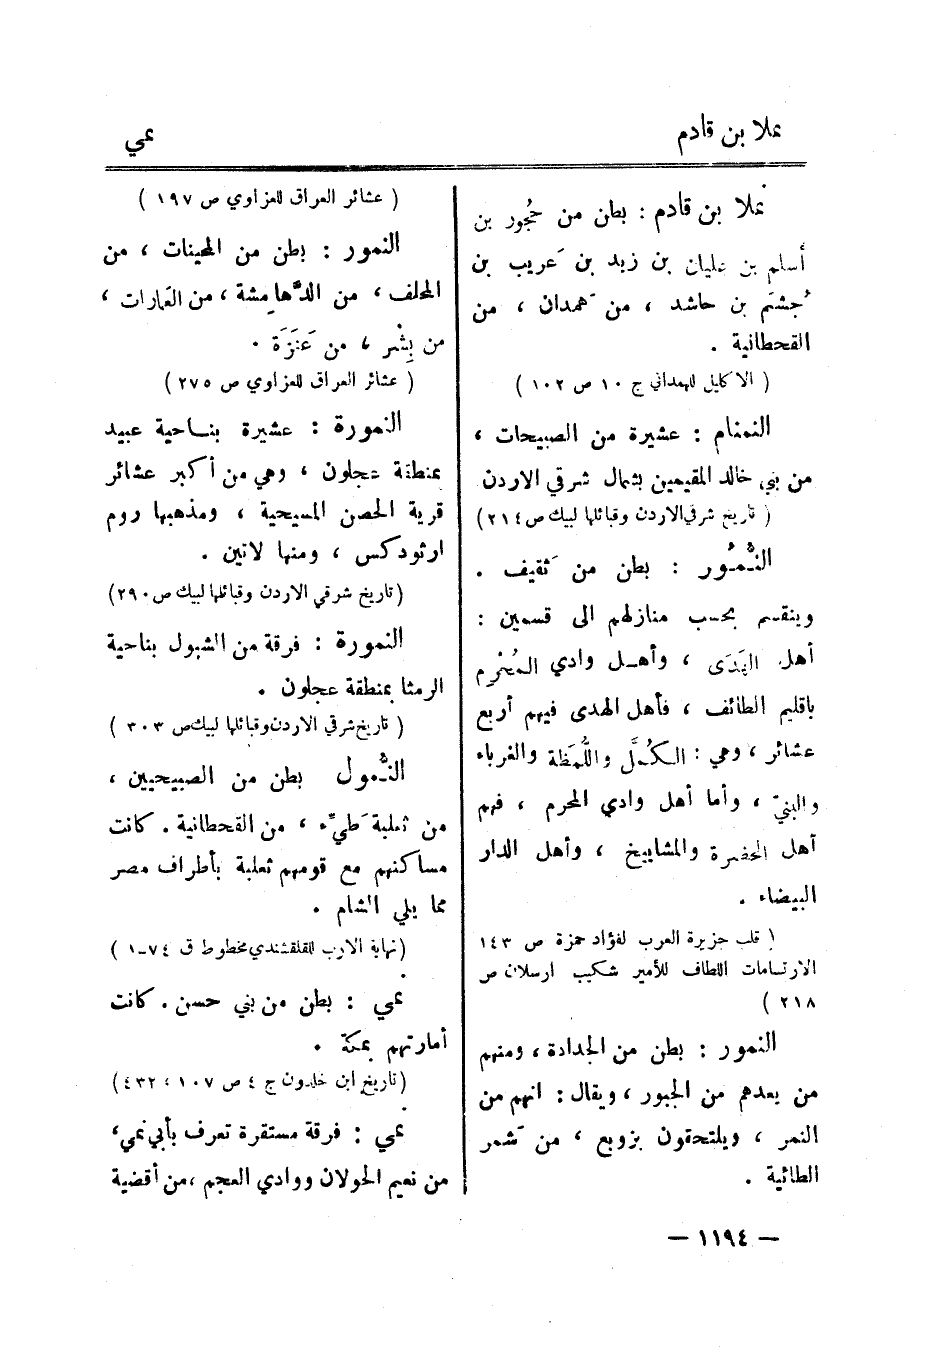 نملا بن قادم
نمي
نملا بن قادم : بطن من حُجُور بن
أسلم بن عليان بن زيد بن عَريب بن
جُشَم بن حاشد ، من هَمدان ، من
القحطانية .
( الاكليل للهمداني ج ١٠ ص ١٠٢ )
النمنام : عشيرة من الصبيحات ،
من بني خالد المقيمين بشمال شرقي الاردن
( تاريخ شرقي الاردن وقبائلها لبيك ص ٢١٤)
النُّمُور : بطن من ثَقيف .
وينقسم بحسب منازلهم الى قسمين :
أهل الهَدَى ، وأهل وادي المُحْرِم
باقليم الطائف ، فأهل الهدى فيهم أربع
عشائر ، وهي : الكُمَّل واللُّمَظة والغرباء
والبنيّ ، وأما أهل وادي المحرم ، فهم
أهل الخضرة والمشاييخ ، وأهل الدار
البيضاء .
( قلب جزيرة العرب لفؤاد حمزة ص ١٤٣
الارتسامات اللطاف للأمير شكيب ارسلان ص
٢١٨ )
النمور : بطن من الجدادة ، ومنهم
من يعدهم من الجبور ، ويقال : انهم من
النمر ، ويلتحقون بزوبع ، من شَمر
الطائية .
( عشائر العراق للعزاوي ص ١٩٧ )
النمور : بطن من المحينات ، من
المخلف ، من الدَّهامِشة ، من العَمارات ،
من بِشْر ، من عَنَزَة .
( عشائر العراق للعزاوي ص ٢٧٥ )
النمورة : عشيرة بناحية عبيد
بمنطقة عجلون ، وهي من أكبر عشائر
قرية الحصن المسيحية ، ومذهبها روم
ارثودكس ، ومنها لاتين .
(تاريخ شرقي الاردن وقبائلها لبيك ص ٢٩٠)
النمورة : فرقة من الشبول بناحية
الرمثا بمنطقة عجلون .
( تاريخ شرقي الاردن وقبائلها لبيك ص ٣٠٣ )
النُّمول بطن من الصبيحيين ،
من ثعلبة طَيِّء ، من القحطانية . كانت
مساكنهم مع قومهم ثعلبة بأطراف مصر
مما يلي الشام .
(نهاية الارب للقلقشندي مخطوط ق ٧٤-١ )
نمي : بطن من بني حسن . كانت
أمارتهم بمكة .
(تاريخ ابن خلدون ج ٤ ص ١٠٧ ، ٤٣٢)
نمي : فرقة مستقرة تعرف بأبي نمي ،
من نعيم الجولان ووادي العجم ،من أقضية
— ١١٩٤ —